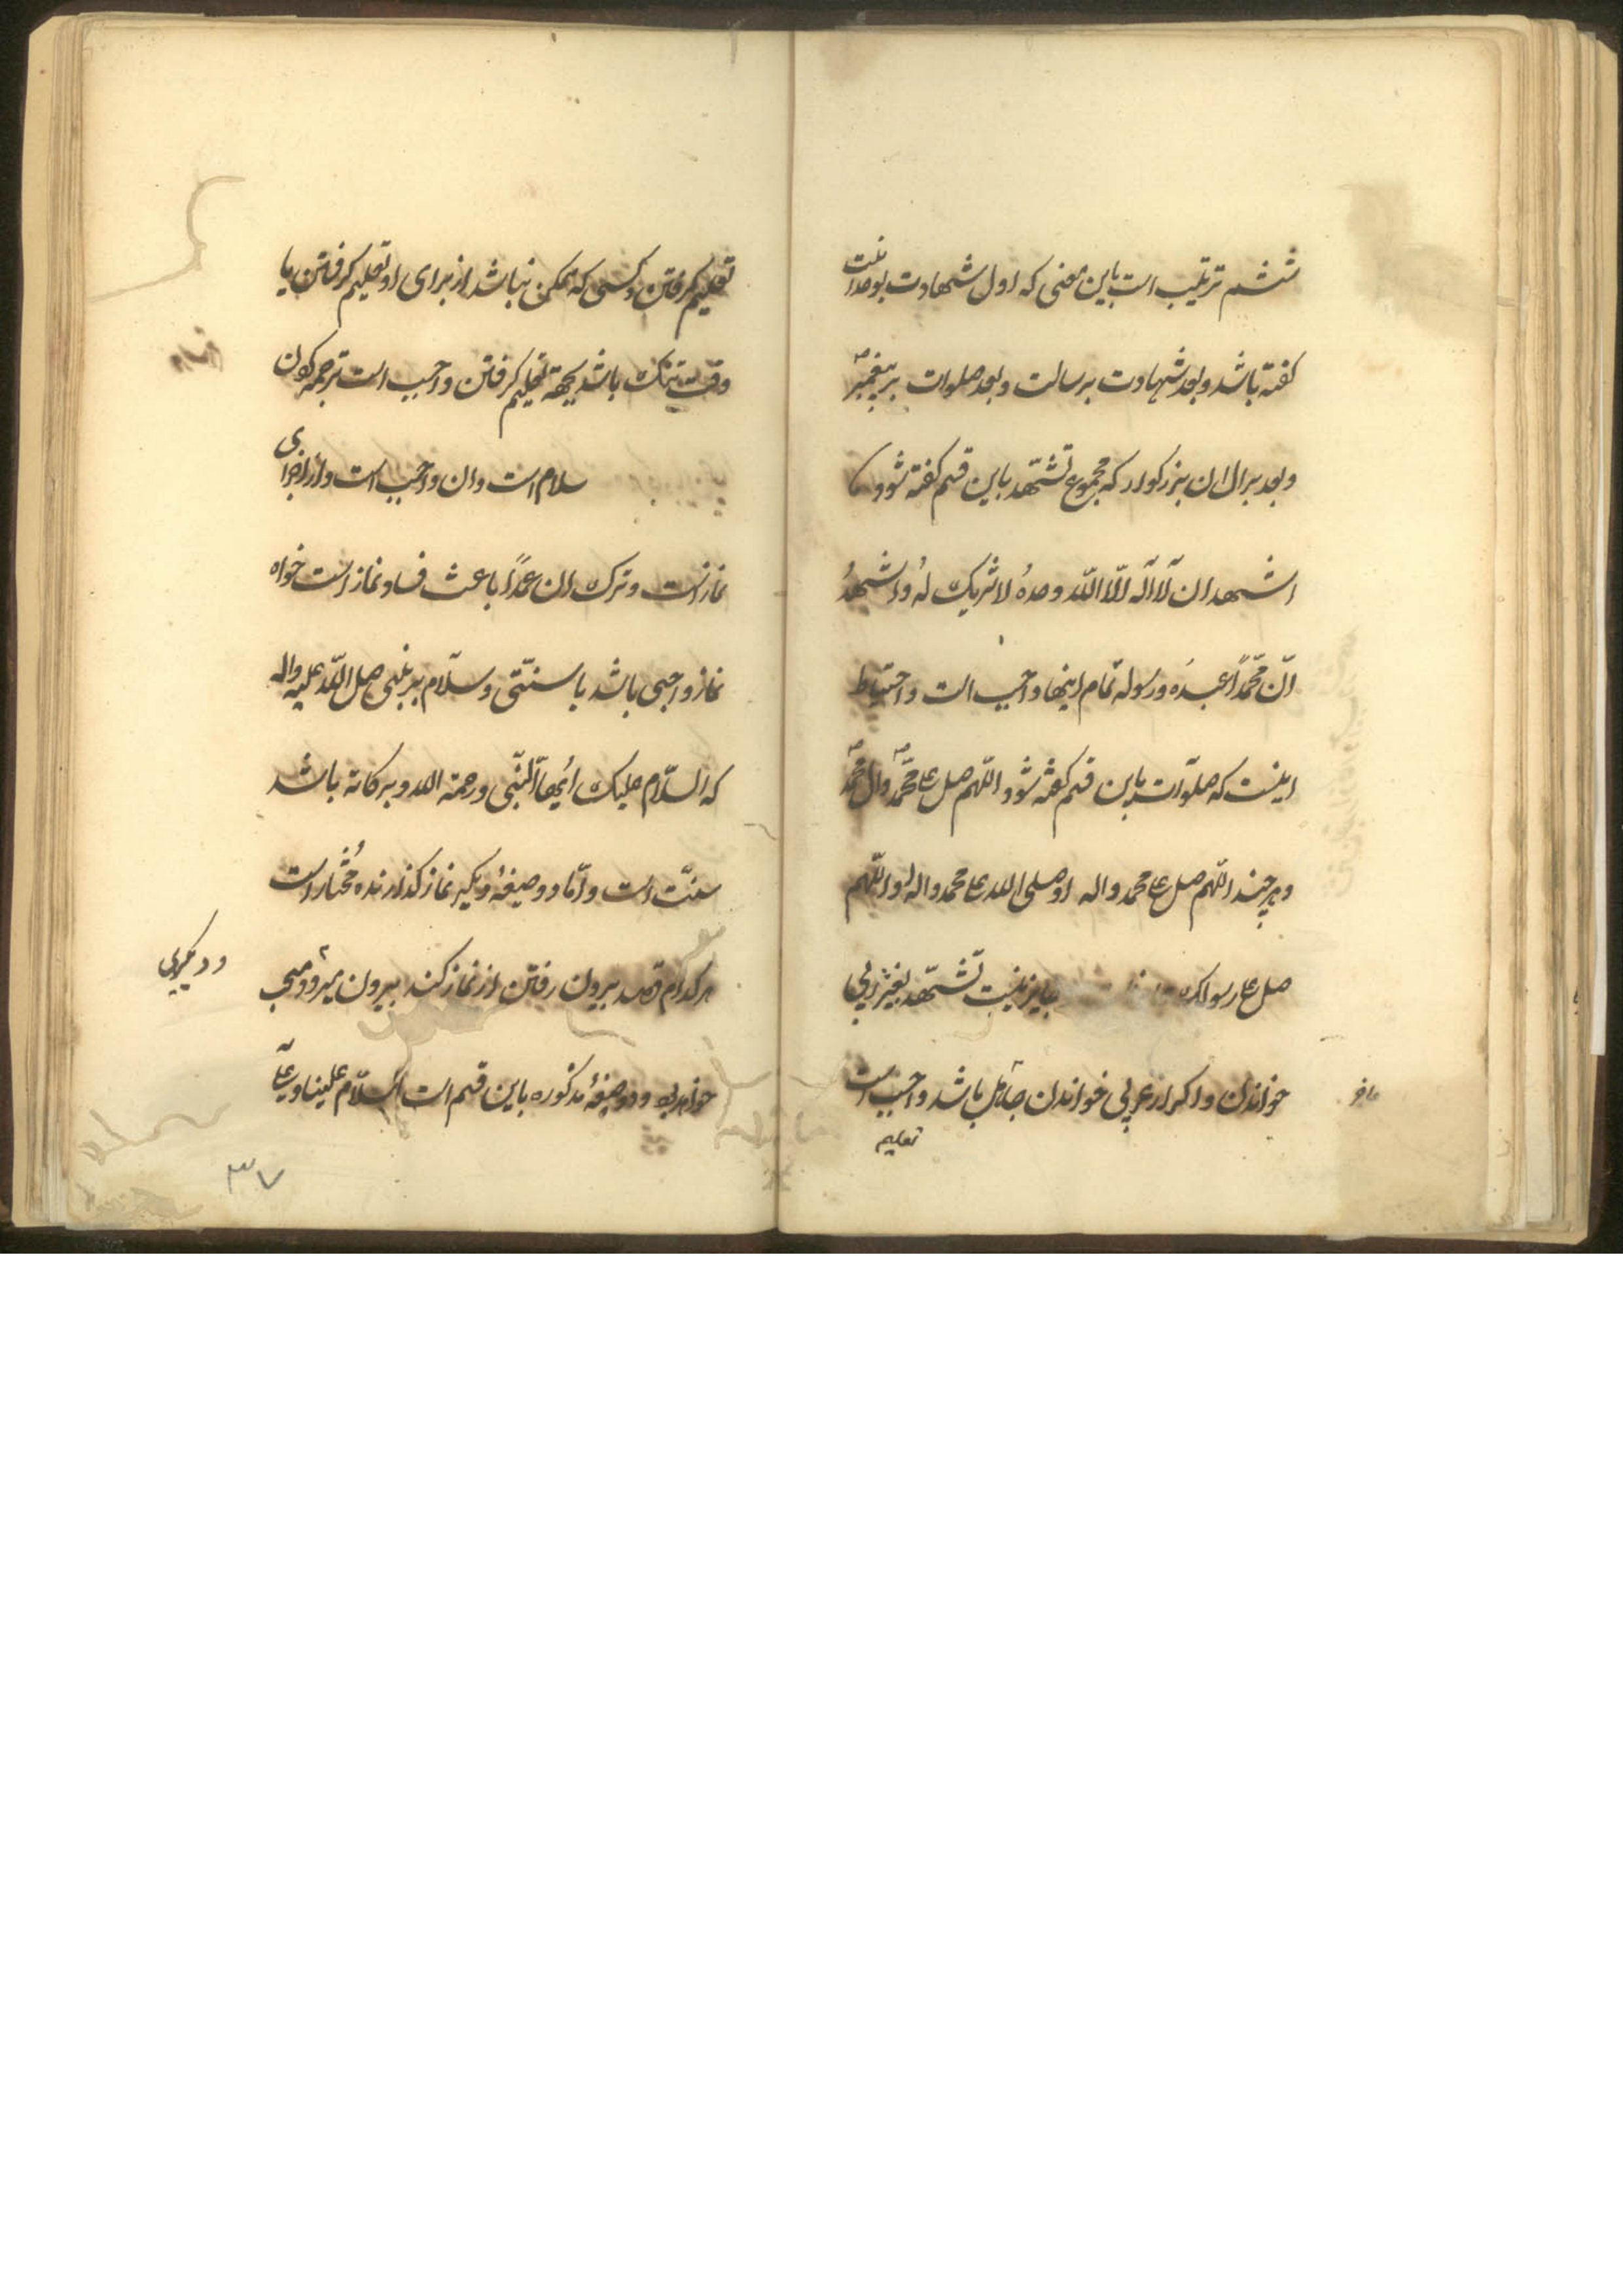 ششم ترتیب است باین معنی که اول شهادت بوحدانیت
کفته باشد و بعد شهادت برسالت و بعد صلوات بر پیغمبر ص
و بعد بر ال ان بزرکوار که مجموع تشهّد باین قسم کفته شود
اشهد ان لا اله الّا اللّه وحدهُ لا شریک لهُ و اشهدُ
انّ محمّداً عبدُه و رسوله تمام اینها واجب است و احتیاط
اینست که صلوات باین قسم کفته شود اللّهم صل علی محمّد ص وال محمّد ص
و هر چند اللّهم صل علی محمد واله او صلی الله علی محمد واله او اللّهم
صل علی رسولک جایز نیست تشهّد بغیر عربی
خواندن و اکر از عربی خواندن جاهل باشد واجب است
تعلیم
تعلیم کرفتن و کسی که ممکن نباشد از برای او تعلیم کرفتن یا
وقت تنک باشد بجهة تعلیم کرفتن واجب است ترجمه کردن
سلام است وان واجب است و از اجزای
نماز است و ترک ان عمداً باعث فساد نماز است خواه
نماز واجبی باشد یا سنّتی و سلام بر نبی صل اللّه علیه واله
که السّلام علیک ایّها النّبی و رحمة الله و برکاته باشد
سنّت است و امّا دو صیغهٔ دیکیر نماز کذارنده مُختار است
هر کدام قصد بیرون رفتن از نماز کند بیرون میرود و مستحب
و دیکیری
خواهد بود و دو صیغهٔ مذکوره باین قسم است السّلام علینا و علی
۳۷